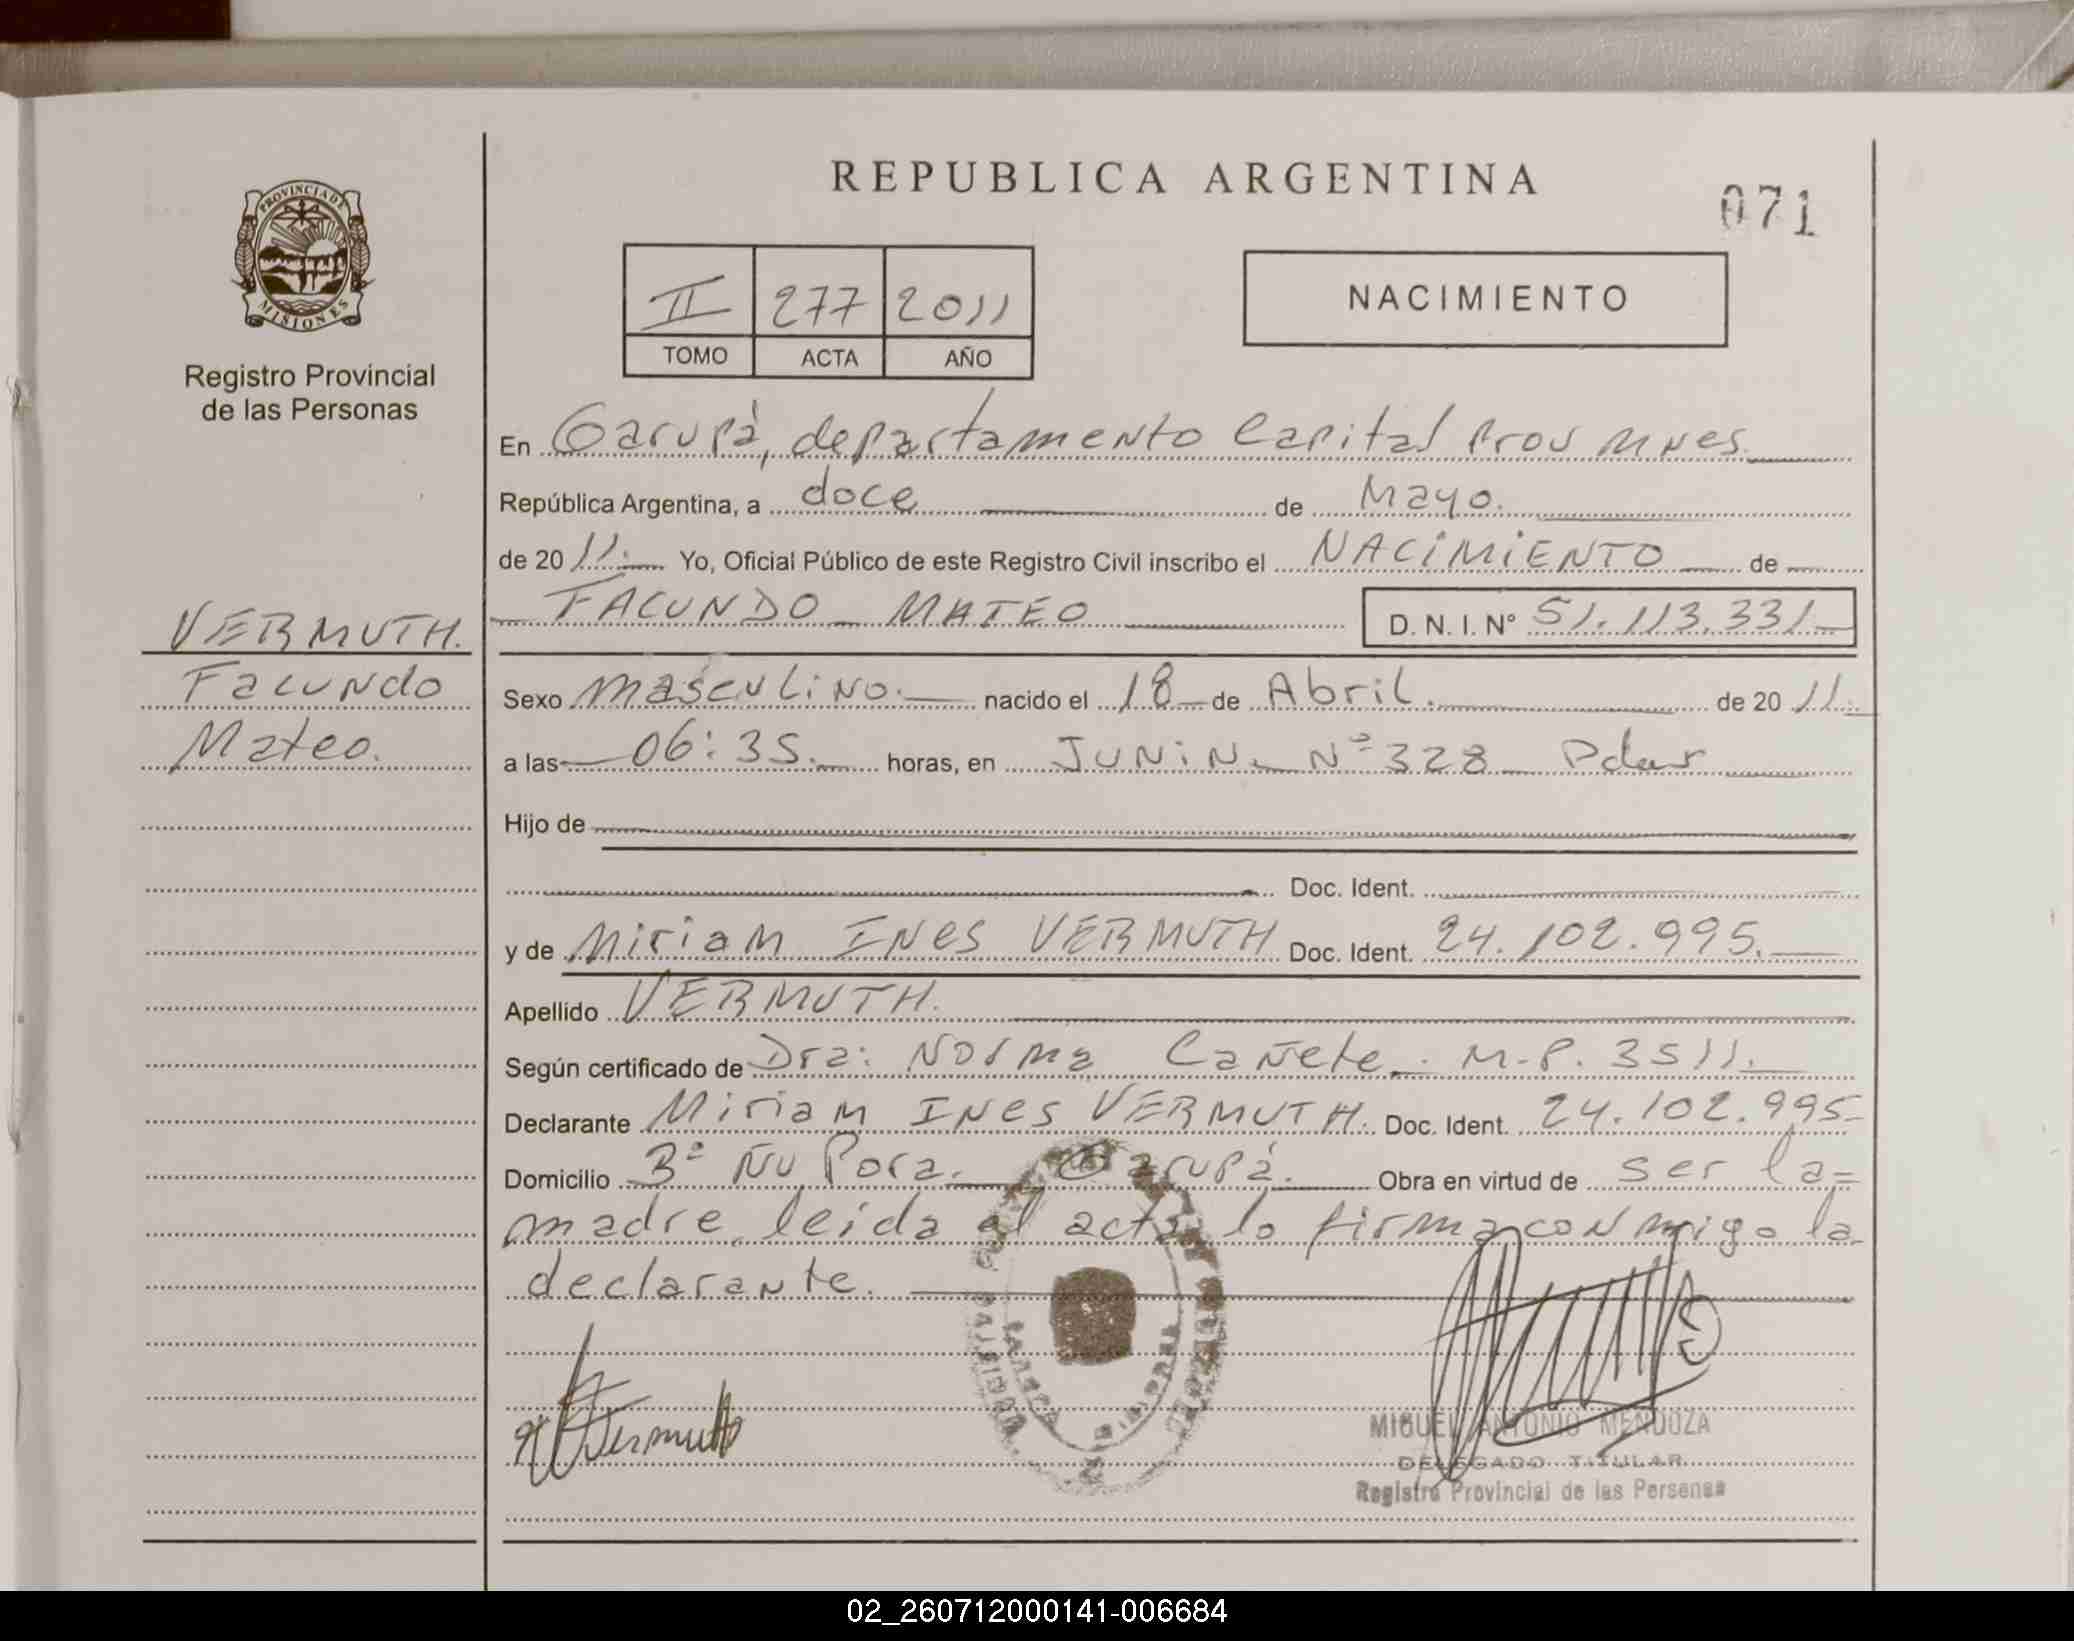 REPUBLICA ARGENTINA
071
PROVINCIA DE
MISIONES
Registro Provincial
de las Personas
II 277 2011
TOMO ACTA AÑO
NACIMIENTO
En Garupá, departamento Capital Prov Mnes
República Argentina, a doce de Mayo.
de 2011. Yo, Oficial Público de este Registro Civil inscribo el NACIMIENTO de
FACUNDO MATEO D. N. I. Nº 51.113.331
VERMUTH.
Facundo
Mateo.
Sexo masculino. nacido el 18 de Abril. de 2011.
a las 06:35. horas, en JUNIN Nº 328 Pdas
Hijo de
Doc. Ident.
y de Miriam INes VERMUTH Doc. Ident. 24.102.995.
Apellido VERMUTH.
Según certificado de Dra: Norma Cañete. M.P. 3511.
Declarante Miriam INes VERMUTH. Doc. Ident. 24.102.995
Domicilio Bº Ñu Pora. Garupá. Obra en virtud de ser la
madre, leida el acta, lo firma conmigo la
declarante.
Vermuth
MIGUEL ANTONIO MENDOZA
DELEGADO TITULAR
Registro Provincial de las Personas
02_260712000141-006684